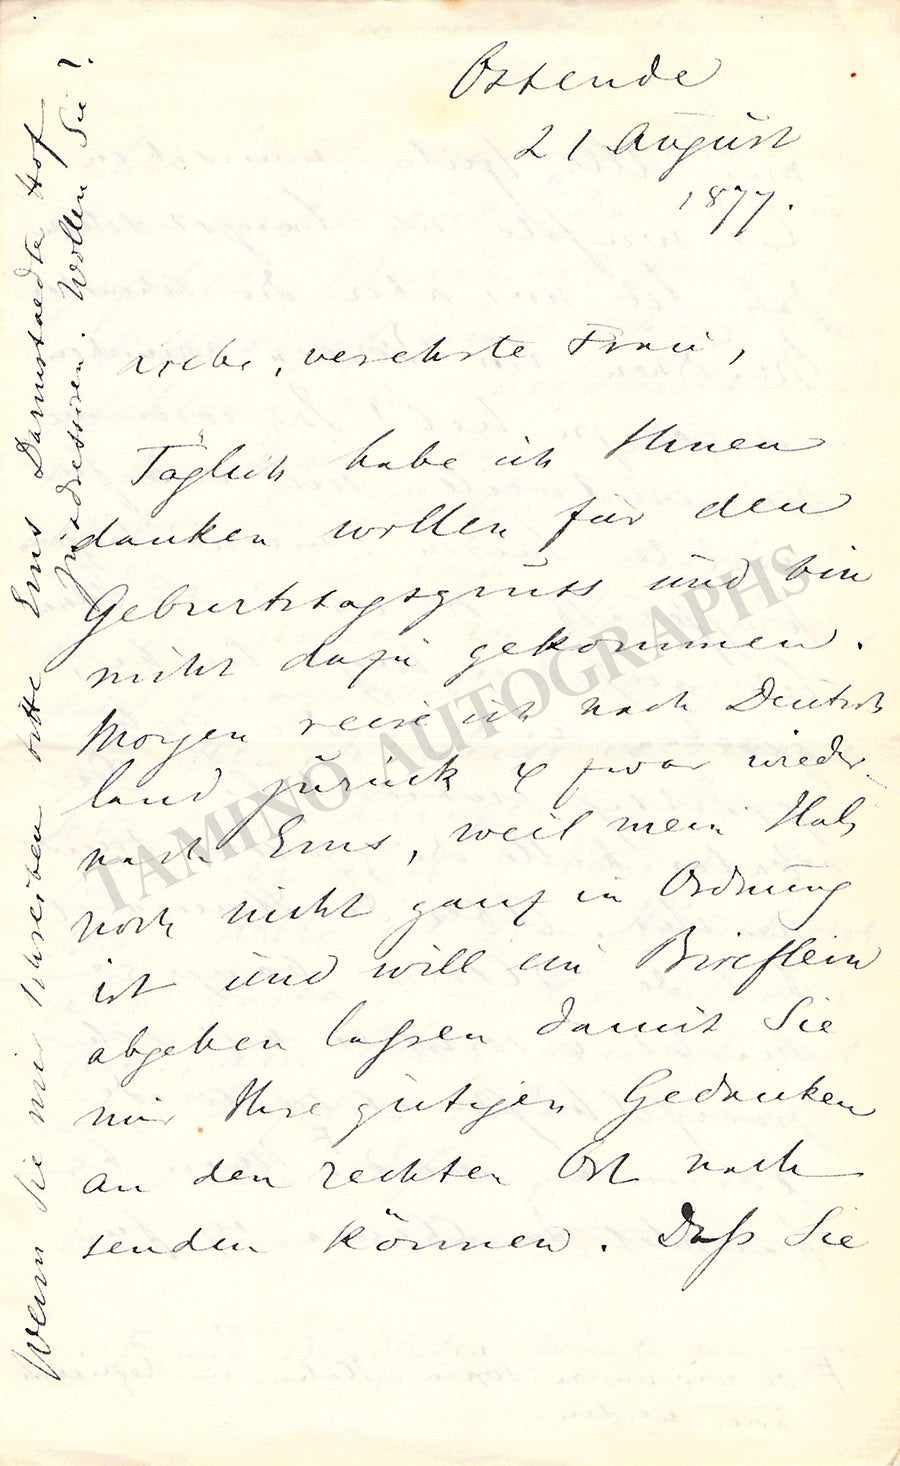 Ostende
21 August
1877.
Liebe, verehrte Frau,
Täglich habe ich Ihnen
danken wollen für den
Geburtstagsgruss und bin
nicht dazu gekommen.
Morgen reise ich nach Deutsch
land zurück & zwar wieder
nach Ems, weil mein Hals
noch nicht ganz in Ordnung
ist und will ein Brieflein
abgeben lassen damit Sie
mir Ihre gütigen Gedanken
an den rechten Ort nach
senden können. Daß Sie
Wenn Sie mir schreiben bitte Ems Darmstaedter Hof
zu adressiren. Wollen Sie?
TAMINO AUTOGRAPHS